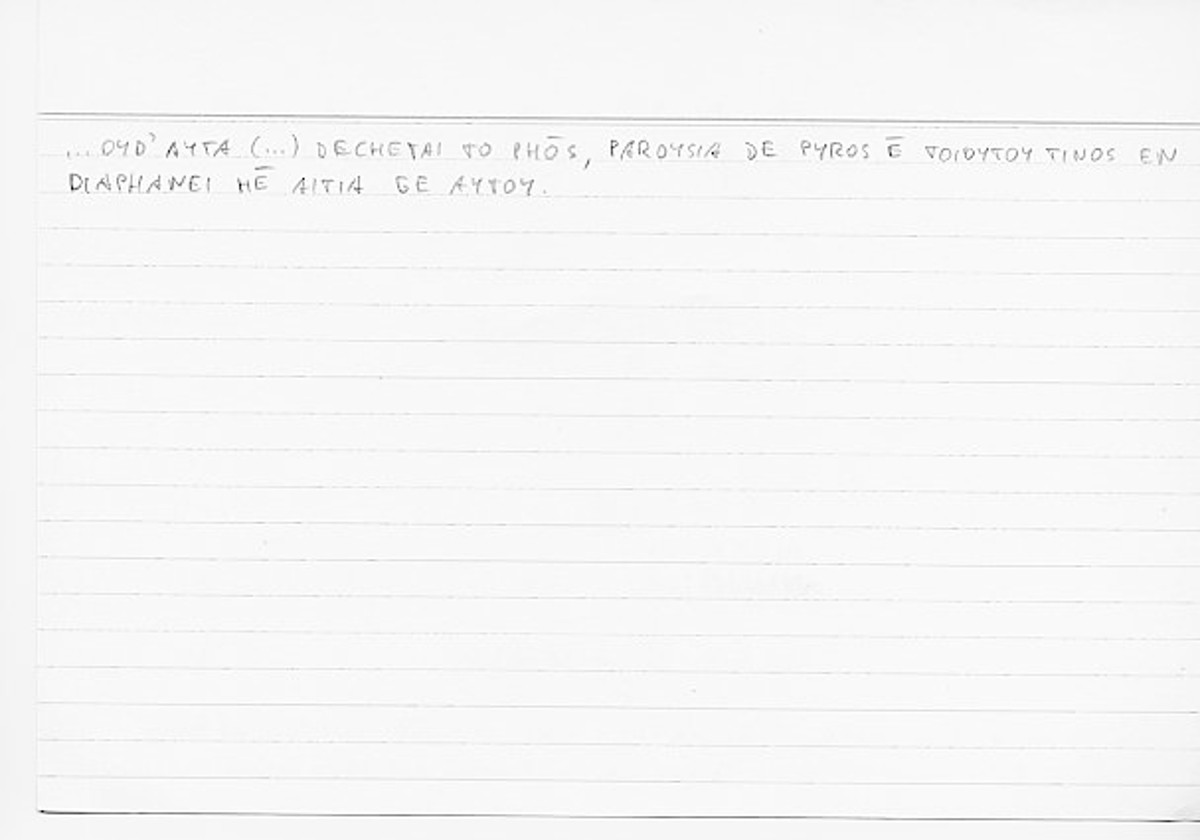 ... OYD' AYTA (...) DECHETAI TO PHŌS, PAROYSIA DE PYROS Ē TOIOYTOY TINOS EN
DIAPHANEI HĒ AITIA GE AYTOY.